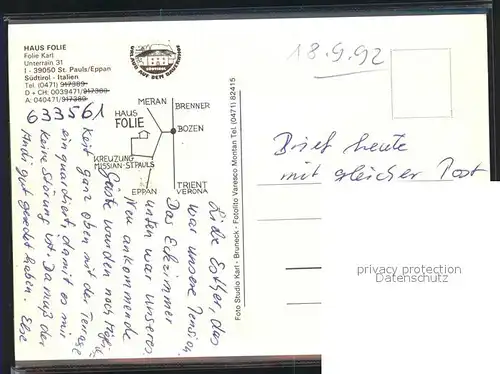 HAUS FOLIE
Folie Karl
Unterrain 31
I - 39050 St. Pauls/Eppan
Südtirol - Italien
Tel. (0471) 917389
D + CH: 0039471/917389
A: 040471/917389
633561
URLAUB AUF DEM BAUERNHOF
MERAN
BRENNER
HAUS
FOLIE
BOZEN
KREUZUNG
MISSIAN-ST.PAULS
EPPAN
TRIENT
VERONA
Liebe Esther, das
war unsere Pension
Das Eckzimmer
unten war unseres.
Neu ankommende
Gäste wurden nach Möglich-
keit ganz oben mit der Terrasse
einquartiert, damit es nur
keine Störung ist. Da muß der
Andi gut geredet haben. Else
Foto Studio Karl - Bruneck - Fotolito Varesco Montan Tel. (0471) 82415
18.9.92
Brief heute
mit gleicher Post
privacy protection
Datenschutz